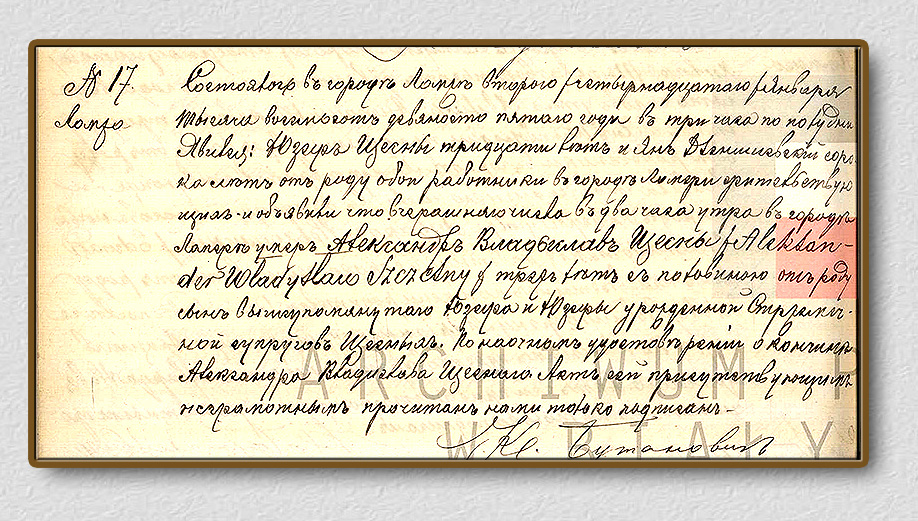 № 17.
Ломжа
Состоялось въ городѣ Ломжѣ второго /четырнадцатаго/ Января
тысяча восемьсотъ девяносто пятаго года въ три часа по полудни
Явился: Юзефъ Щесны тридцати лѣтъ и Янъ соро-
ка лѣтъ отъ роду оба работники въ городѣ Ломжи жительствую
щіе и объявили что вчерашняго числа въ два часа утра въ городѣ
Ломжѣ умеръ Александръ Владиславъ Щесны /Aleksan-
der Władysław Szczęsny/ трехъ лѣтъ съ половиною отъ роду
сынъ вышеупомянутаго Юзефа и Юзефы урожденной
ной супруговъ Щесныхъ. По наочномъ удостовѣреніи о кончинѣ
Александра Владислава Щеснаго Актъ сей присутствующимъ
неграмотнымъ прочитанъ нами только подписанъ -
ARCHIWUM P
W